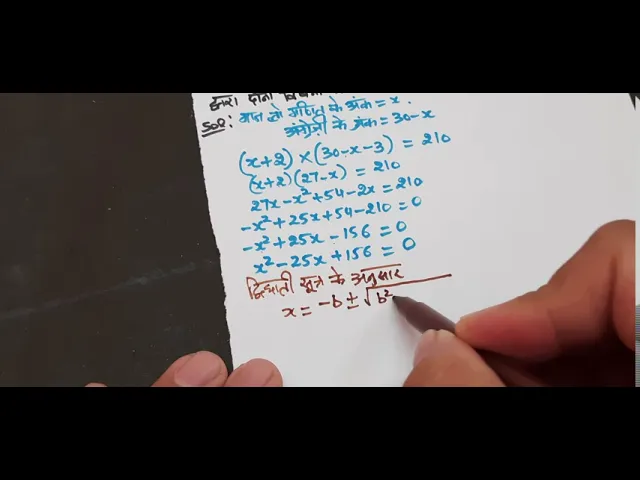 द्वारा दोनों विषयों
Sol: माना लो गणित के अंक = x.
अंग्रेज़ी के अंक = 30-x
(x+2) × (30-x-3) = 210
(x+2)(27-x) = 210
27x-x²+54-2x=210
-x²+25x+54-210=0
-x²+25x-156=0
x²-25x+156=0
द्विघाती सूत्र के अनुसार
x = -b ± √b²